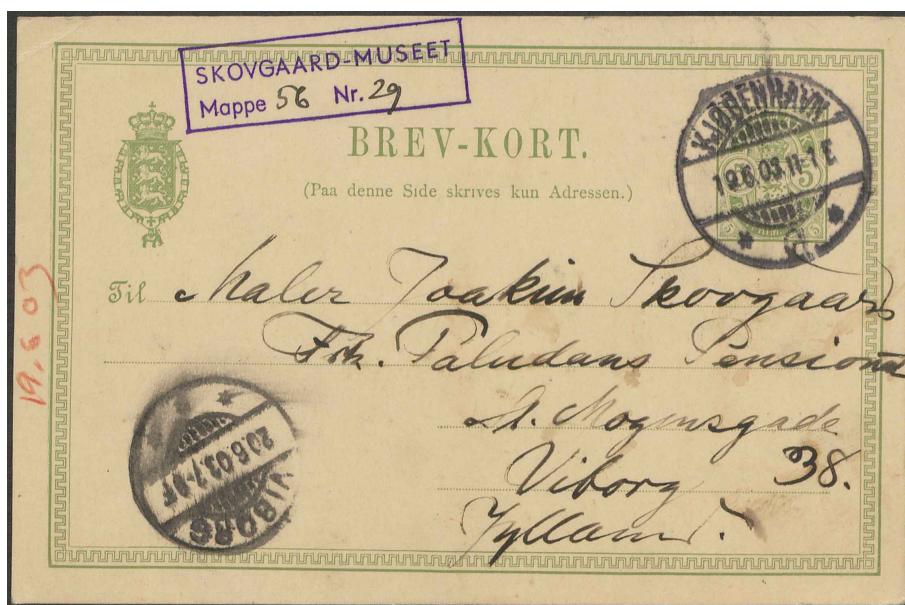 SKOVGAARD-MUSEET
Mappe 56 Nr. 29
BREV-KORT.
(Paa denne Side skrives kun Adressen.)
KJØBENHAVN
19.6.03.11-1 E
5 5
Til Maler Joakim Skovgaard
Frk. Paludans Pensionat
St. Mogensgade
38.
Viborg
Jylland.
VIBORG
20.6.03.7-9 F
19.6 03